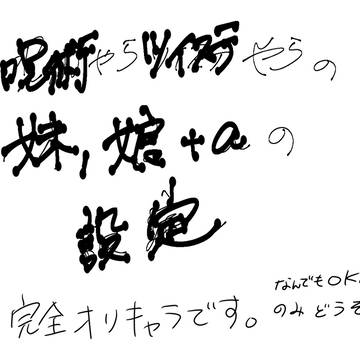 呪術やらツイステやらの
妹,娘+αの
設定
完全オリキャラです。
なんでもOK.
のみどうぞ